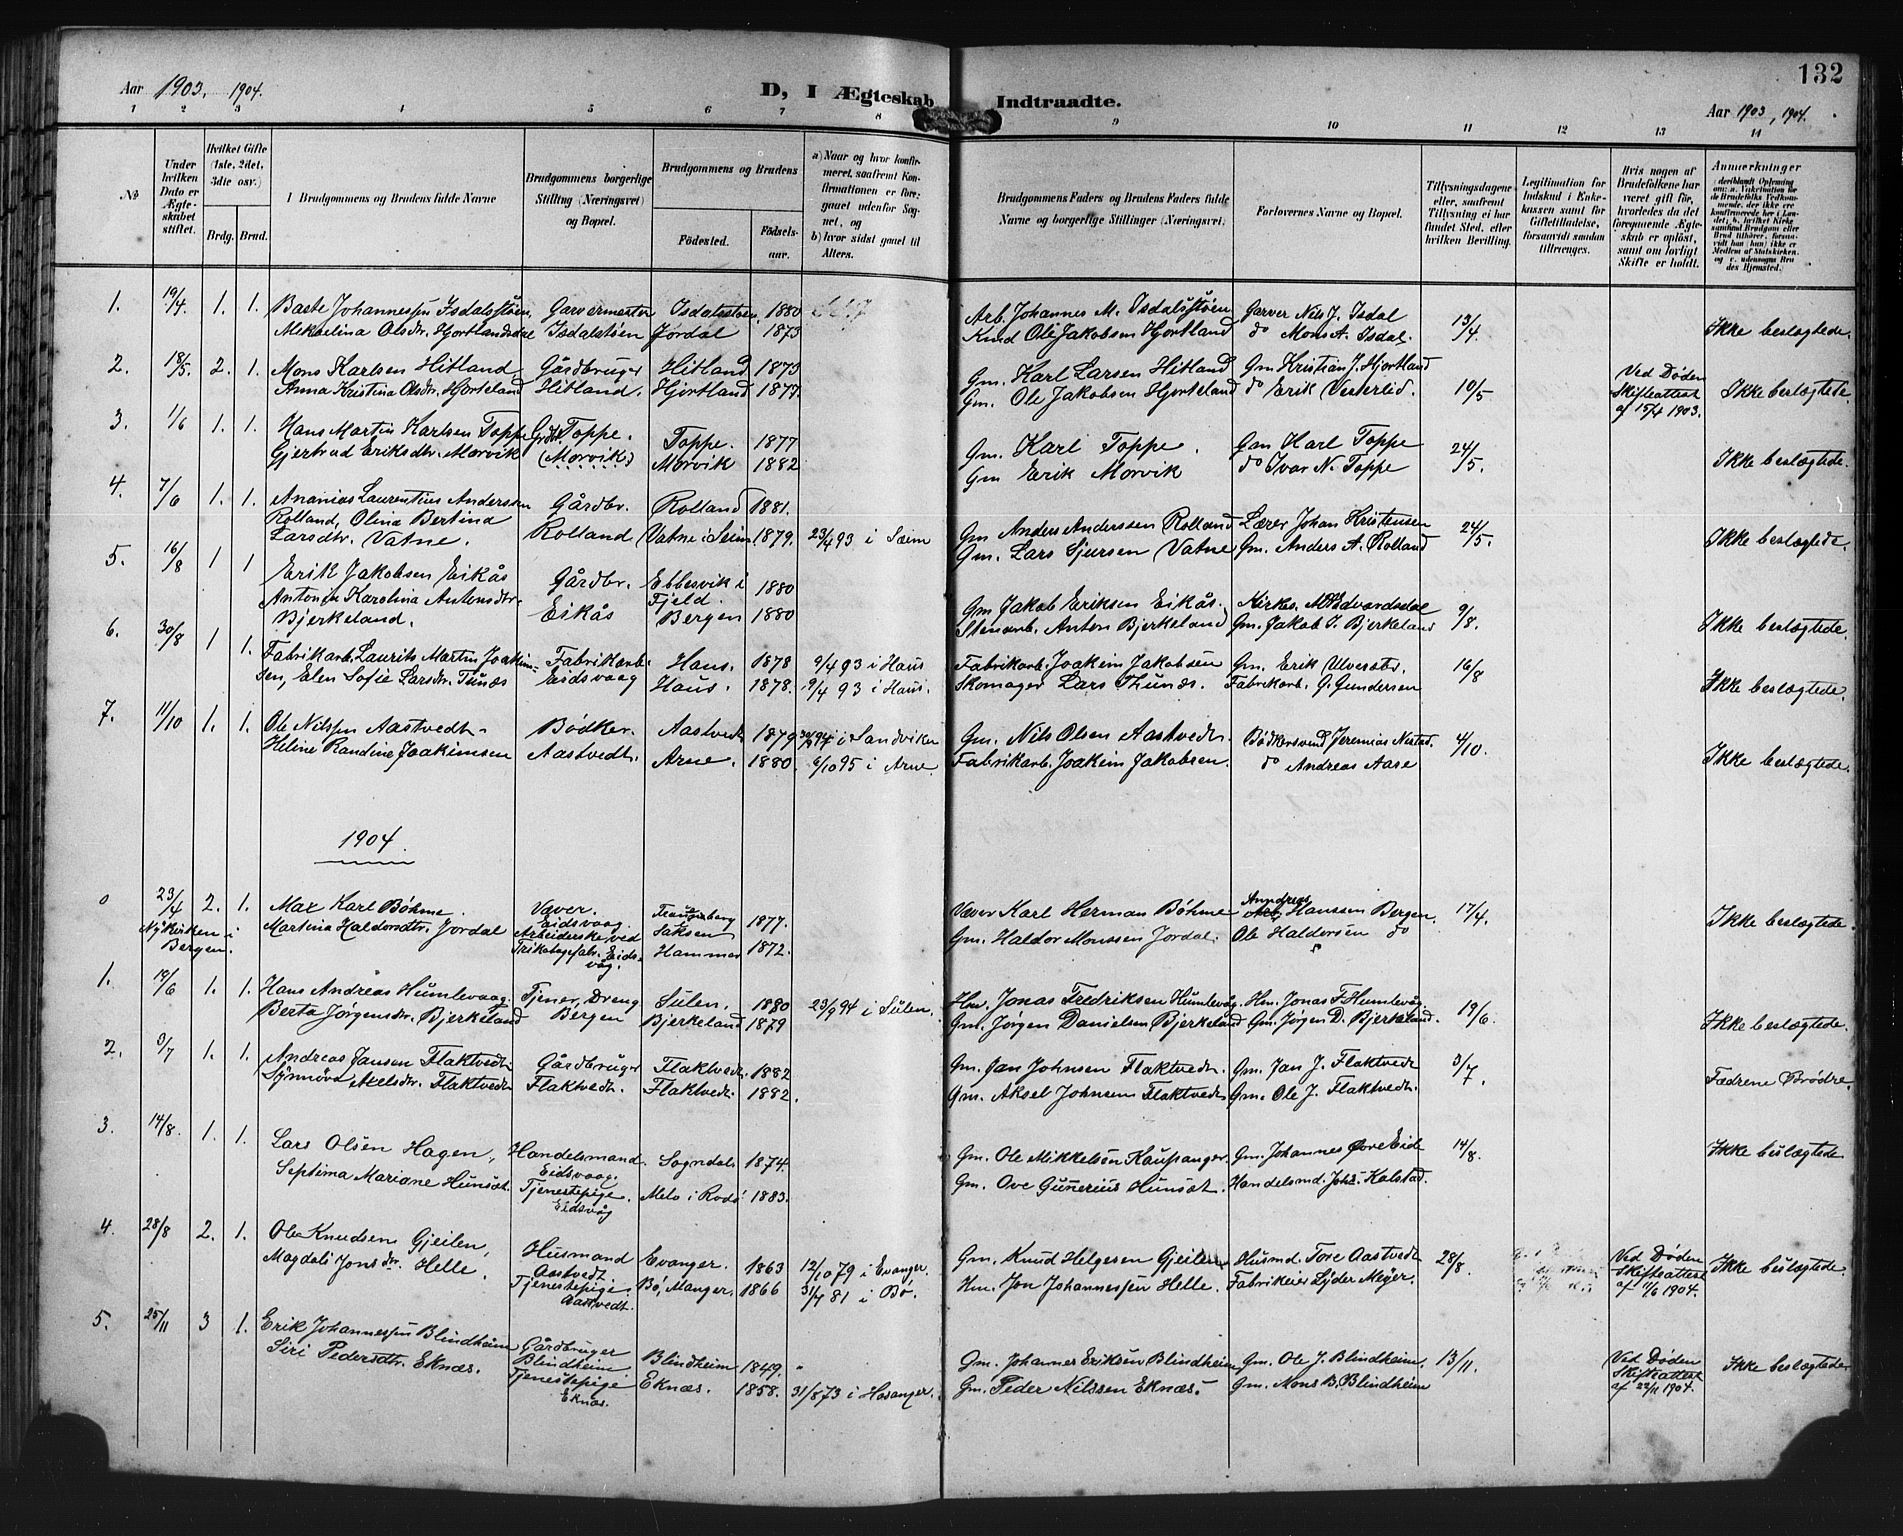 Aar 1903. 1904.
D, I Ægteskab Indtraadte.
132
Aar 1903, 1904.
1 2 3 4 5 6 7 8 9 10 11 12 13 14
No
Under hvilken Dato er Ægteskabet stiftet.
Hvilket Gifte (1ste, 2det, 3dte osv.)
Brdg. Brud.
I Brudgommens og Brudens fulde Navne
Brudgommens borgerlige Stilling (Næringsvei) og Bopæl.
Brudgommens og Brudens
Fødested. Fødselsaar.
a) Naar og hvor konfirmeret, saafremt Konfirmationen er foregaaet udenfor Sognet, og
b) hvor sidst gaaet til Alters.
Brudgommens Faders og Brudens Faders fulde Navne og borgerlige Stillinger (Næringsvei).
Forlovernes Navne og Bopæl.
Tillysningsdagene eller, saafremt Tillysning ei har fundet Sted, efter hvilken Bevilling.
Legitimation for Indskud i Enkekassen samt for Giftetilladelse, forsaavidt saadan tiltrænges.
Hvis nogen af Brudefolkene har været gift før, hvorledes da det foregaaende Ægteskab er opløst, samt om lovligt Skifte er holdt.
Anmerkninger
1. 19/4 1. 1. Baste Johannessen Isdalstøen, Garvermester Isdalstøen, 1880 Arb. Johannes M. Isdalstøen Garver Nils J. Isdal 13/4 Ikke beslægtede.
Mikkelina Olsdr. Hjortlandsdal Isdalstøen Jordal 1873 Knud Ole Jakobsen Hjortland do Mons A. Isdal.
2. 18/5. 2. 1. Mons Karlsen Hitland Gårdbruger Hitland 1873 Gm. Karl Larsen Hitland Gm Kristian J. Hjortland 10/5 Ved Døden Skifteattest af 15/4 1903. Ikke beslægtede.
Anna Kristina Olsdtr. Hjorteland Hitland. Hjortland 1877. Gm. Ole Jakobsen Hjorteland do Erik Vesterlid.
3. 1/6 1. 1. Hans Martin Karlsen Toppe Grdbr. Toppe. Toppe. 1877 Gm. Karl Toppe. Gm Karl Toppe 24/5. Ikke beslægtede.
Gjertrud Eriksdtr. Morvik (Morvik) Morvik 1882 Gm Erik Morvik do Ivar N. Toppe
4. 7/6 1. 1. Ananias Laurentius Anderssen Gårdbr. Rolland 1881. Gm Anders Anderssen Rolland Lærer Johan Kristensen 24/5. Ikke beslægtede.
Rolland, Olina Bertina Larsdtr. Vatne. Rolland Vatne i Seim. 1879. 23/4 93 i Sæim Gm. Lars Sjursen Vatne Gm. Anders A. Rolland
5. 16/8 1 1 Erik Jakobsen Eikås Gårdbr. Ebbesvik i Fjeld. 1880 Gm Jakob Eriksen Eikås. Kirkes. A. Edvardsdal 9/8. Ikke beslægtede.
Antonia Karolina Antonsdtr. Bjerkeland. Eikås Bergen 1880 Stenarb. Anton Bjerkeland Gm. Jakob J. Bjerkeland
6. 30/8 1 1. Fabrikarb. Laurits Martin Joakimsen, Fabrikarb. Haus. 1878 9/4 93 i Haus Fabrikarb. Joakim Jakobsen Gm. Erik Ulverstr. 16/8 Ikke beslægtede.
Elen Sofie Larsdtr. Tunæs Eidsvaag Haus. 1878. 9/4 93 i Haus. Skomager Lars Thunæs. Fabrikarb. G. Gundersen
7. 11/10 1. 1. Ole Nilssen Aastvedt. Bødker. Aastvedt 1879 94 i Sandviken Gm. Nils Olsen Aastvedt. Bødkersvend Jeremias Nestad. 4/10. Ikke beslægtede.
Heline Randine Joakimsen Aastvedt. Arne. 1880. 6/10 95 i Arne. Fabrikarb. Joakim Jakobsen. do Andreas Aase
1904.
0 23/4 Nykirken i Bergen. 2. 1. Max Karl Böhme. Væver. Eidsvaag Saksen 1877. Væver Karl Herman Böhme Anndreas Hanssen Bergen. 17/4. Ikke beslægtede.
Martina Haldorsdtr. Jordal Arbeiderske ved Trikotagefabr. Eidsvåg. Hammer 1872. Gm. Haldor Monssen Jordal. Ole Haldorsen do
1. 19/6 1. 1. Hans Andreas Humlevaag. Tjener, Dreng Sulen. 1880 23/9 94 i Sulen. Hm. Jonas Fredriksen Humlevåg. Hm. Jonas F. Humlevåg. 19/6. Ikke beslægtede.
Berta Jørgensdtr. Bjerkeland Bergen Bjerkeland 1879 Gm. Jørgen Danielsen Bjerkeland Gm. Jørgen D. Bjerkeland.
2. 3/7 1. 1. Andreas Jansen Flaktvedt Gårdbruger Flaktvedt. 1882 Gm. Jan Johnsen Flaktvedt. Gm. Jan J. Flaktvedt 3/7. Fædrene Brødre.
Synnøva Axelsdtr. Flaktvedt Flaktvedt. Flaktvedt. 1882. Gm. Aksel Johnsen Flaktvedt Gm. Ole J. Flaktvedt.
3. 14/8. 1. 1. Lars Olsen Hagen, Handelsmand. Eidsvaag. Sogndal. 1874. Gm. Ole Mikkelsen Kaupanger. Gm. Johannes Øvre Eide 14/8. Ikke beslægtede
Septima Mariane Hunsæt. Tjenestepige. Eidsvåg Melø i Rødø 1883. Gm. Ove Gunerius Hunsæt. Handelsmd. Johs. Kalstad.
4. 28/8 2. 1. Ole Knudsen Gjeilen, Husmand Aastvedt. Evanger. 1863 12/10 79 i Evanger. Gm. Knud Helgesen Gjeilen Husmd. Tore Aastvedt 28/8. Ved Døden Skifteattest af 11/6 1904. Ikke beslægtede.
Magdali Jonsdtr. Helle. Tjenestepige Aastvedt. Bø, Manger. 1866 31/7 81 i Bø. Hm. Jon Johannessen Helle. Fabrikeier Lyder Meyer.
5. 25/11 3 1. Erik Johannessen Blindheim Gårdbruger Blindheim Blindheim 1849. " Gm. Johannes Eriksen Blindheim Gm. Ole J. Blindheim. 13/11. Ved Døden Skifteattest af 22/11 1904. Ikke beslægtede
Siri Pedersdtr. Eknæs. Tjenestepige Eknæs. Eknæs. 1858. 31/8 73 i Hosanger. Gm. Peder Nilssen Eknæs. Gm. Mons B. Blindheim